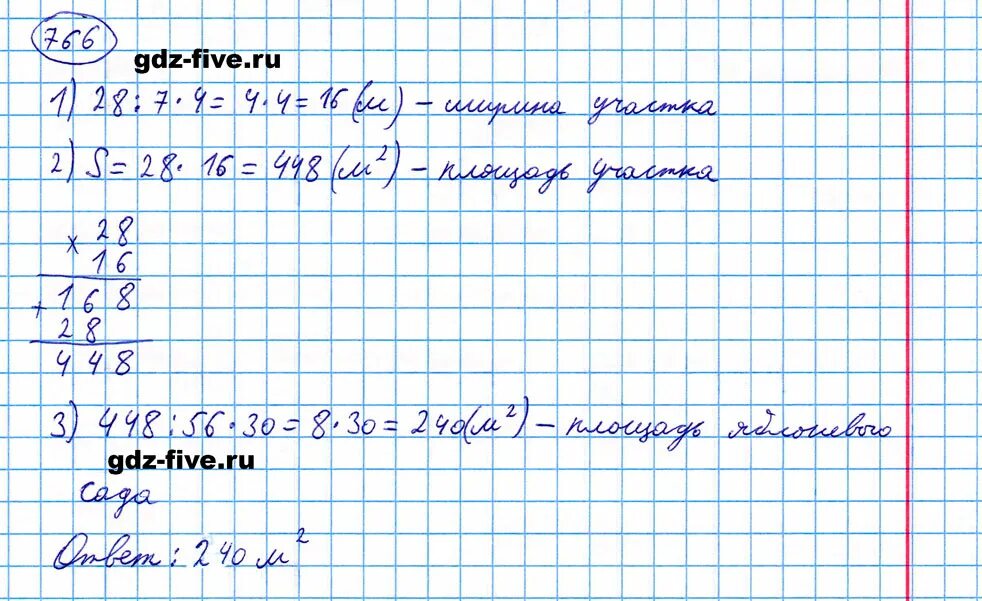 766
gdz-five.ru
1) 28 : 7 · 4 = 4 · 4 = 16 (м) – ширина участка
2) S = 28 · 16 = 448 (м²) – площадь участка
× 28
16
+ 168
28
448
3) 448 : 56 · 30 = 8 · 30 = 240 (м²) – площадь яблоневого
gdz-five.ru
сада
Ответ : 240 м²